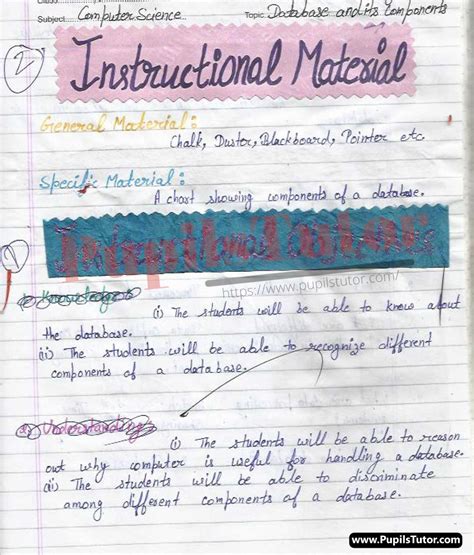 Subject Computer Science Topic Database and its Components
2
Instructional Material
General Material:
Chalk, Duster, Blackboard, Pointer etc.
Specific Material:
A chart showing components of a database.
1
PupilsTutor
https://www.pupilstutor.com/
Knowledge:
(i) The students will be able to know about
the database.
(ii) The students will be able to recognize different
components of a database.
Understanding:
(i) The students will be able to reason
out why computer is useful for handling a database.
(ii) The students will be able to discriminate
among different components of a database.
www.PupilsTutor.com